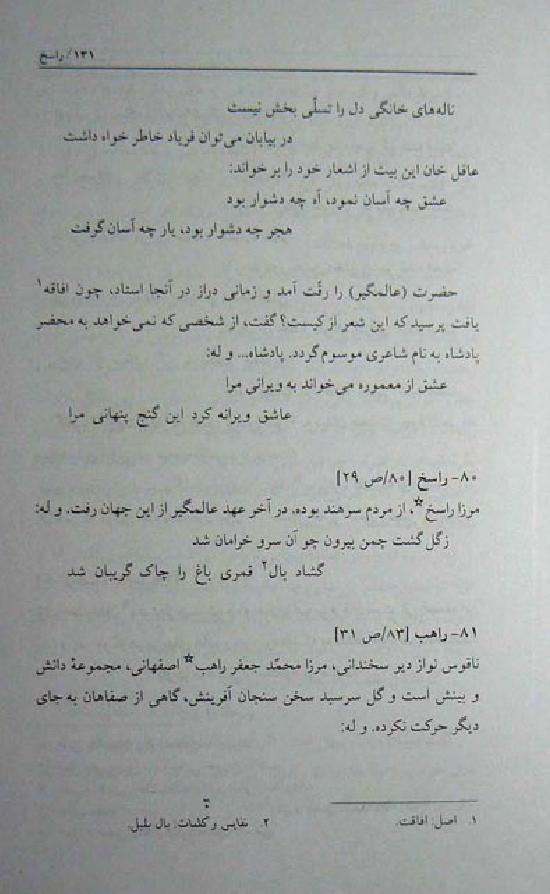 ۱۳۱/ راسخ
ناله‌های خانگی دل را تسلّی بخش نیست
در بیابان می‌توان فریاد خاطر خواه داشت
عاقل خان این بیت از اشعار خود را بر خواند:
عشق چه آسان نمود، آه چه دشوار بود
هجر چه دشوار بود، یار چه آسان گرفت
حضرت (عالمگیر) را رقّت آمد و زمانی دراز در آنجا استاد، چون افاقه۱
یافت پرسید که این شعر از کیست؟ گفت، از شخصی که نمی‌خواهد به محضر
پادشاه به نام شاعری موسوم گردد. پادشاه... و له:
عشق از معموره می‌خواند به ویرانی مرا
عاشق ویرانه کرد این گنج پنهانی مرا
۸۰- راسخ [۸۰/ص ۲۹]
مرزا راسخ*، از مردم سرهند بوده، در آخر عهد عالمگیر از این جهان رفت. و له:
زگل گشت چمن بیرون چو آن سرو خرامان شد
گشاد بال۲ قمری باغ را چاک گریبان شد
۸۱- راهب [۸۳/ص ۳۱]
ناقوس نواز دیر سخندانی، مرزا محمّد جعفر راهب* اصفهانی، مجموعهٔ دانش
و بینش است و گل سرسبد سخن سنجان آفرینش، گاهی از صفاهان به جای
دیگر حرکت نکرده. و له:
۱. اصل: افاقت. ۲. نفایس و کشنات: بال بلبل.